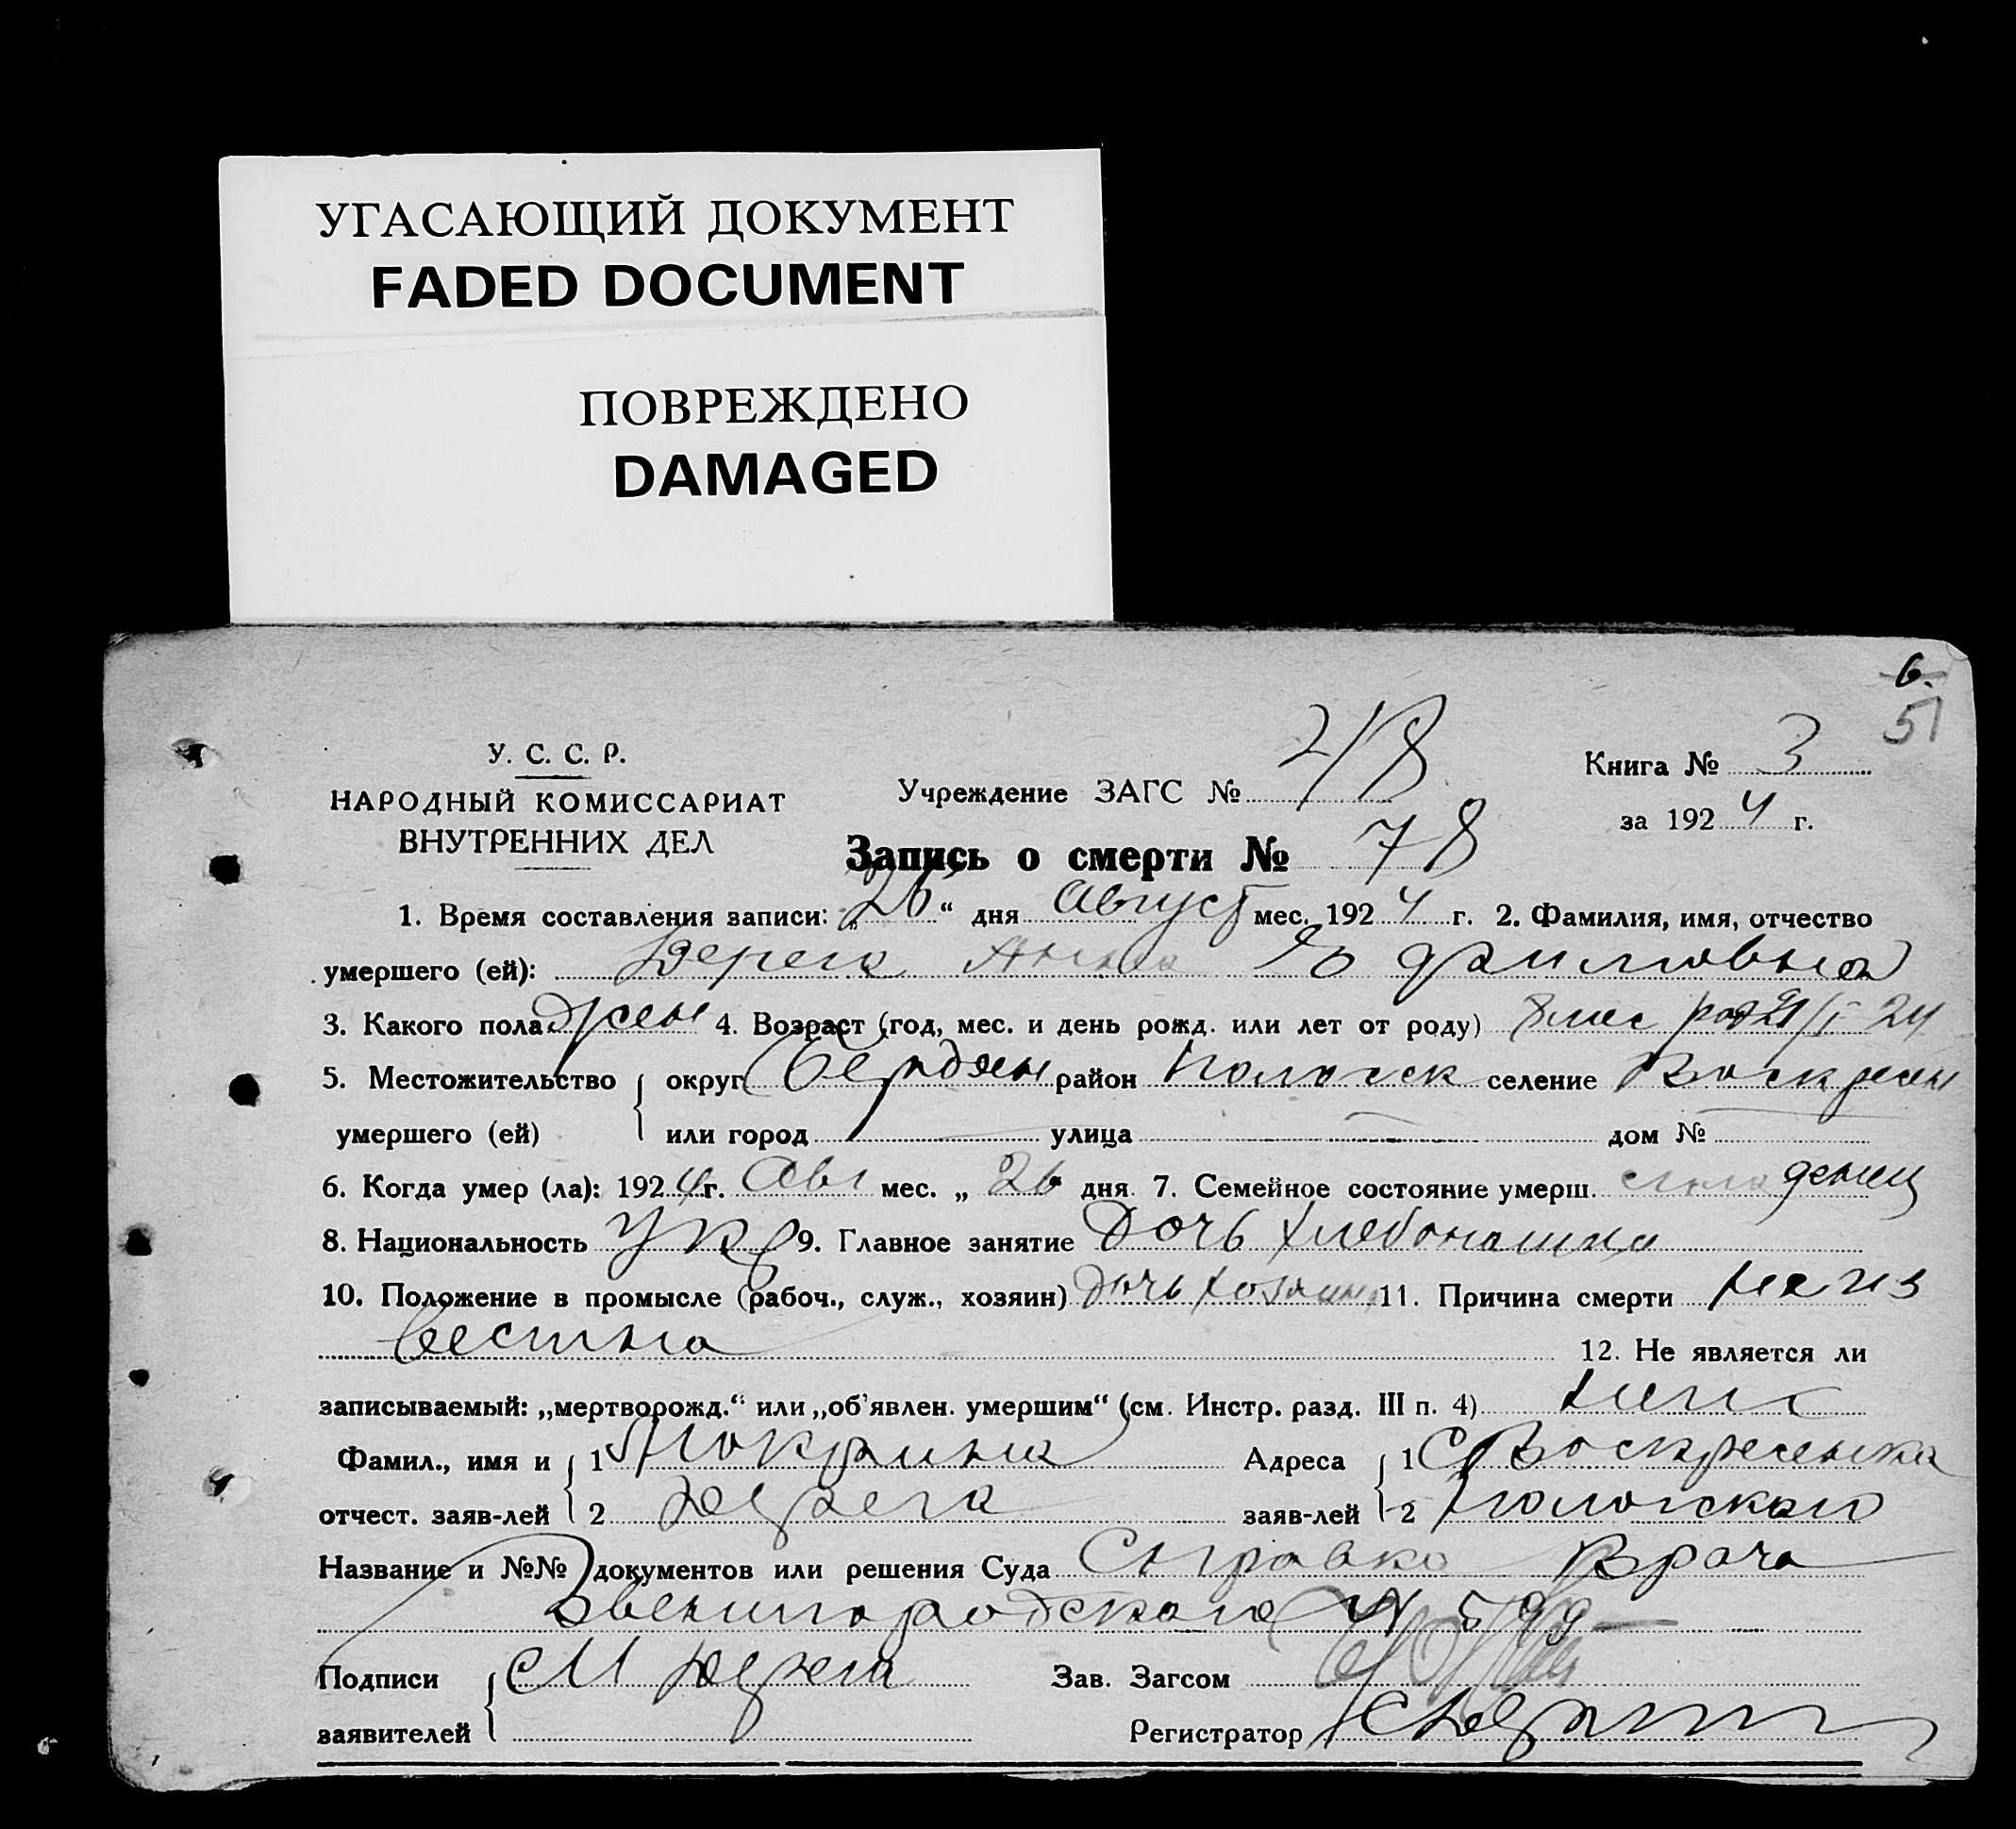 УГАСАЮЩИЙ ДОКУМЕНТ
FADED DOCUMENT
ПОВРЕЖДЕНО
DAMAGED
6.
51
У. С. С. Р.
НАРОДНЫЙ КОМИССАРИАТ
ВНУТРЕННИХ ДЕЛ
Учреждение ЗАГС № 218
Книга № 3
за 1924 г.
Запись о смерти № 78
1. Время составления записи: „26“ дня Август мес. 1924 г. 2. Фамилия, имя, отчество
умершего (ей): Дерега Анна
3. Какого пола жен 4. Возраст (год, мес. и день рожд. или лет от роду) 8 мес род 21/I 24
5. Местожительство округ Бердян район Пологск селение Воскресен
умершего (ей) или город улица дом №
6. Когда умер (ла): 1924 г. Авг мес. „26 дня 7. Семейное состояние умерш. младенец
8. Национальность Укр 9. Главное занятие Дочь хлебопашца
10. Положение в промысле (рабоч., служ., хозяин) Дочь хозяина 11. Причина смерти неиз
вестна
12. Не является ли
записываемый: „мертворожд.“ или „об'явлен. умершим“ (см. Инстр. разд. III п. 4)
Фамил., имя и 1 Мокрина Адреса 1 С Воскресенка
отчест. заяв-лей 2 Дерега заяв-лей 2 Пологского
Название и №№ документов или решения Суда Справка Врача
Звенигородского N 599
Подписи М Дерега Зав. Загсом
заявителей Регистратор